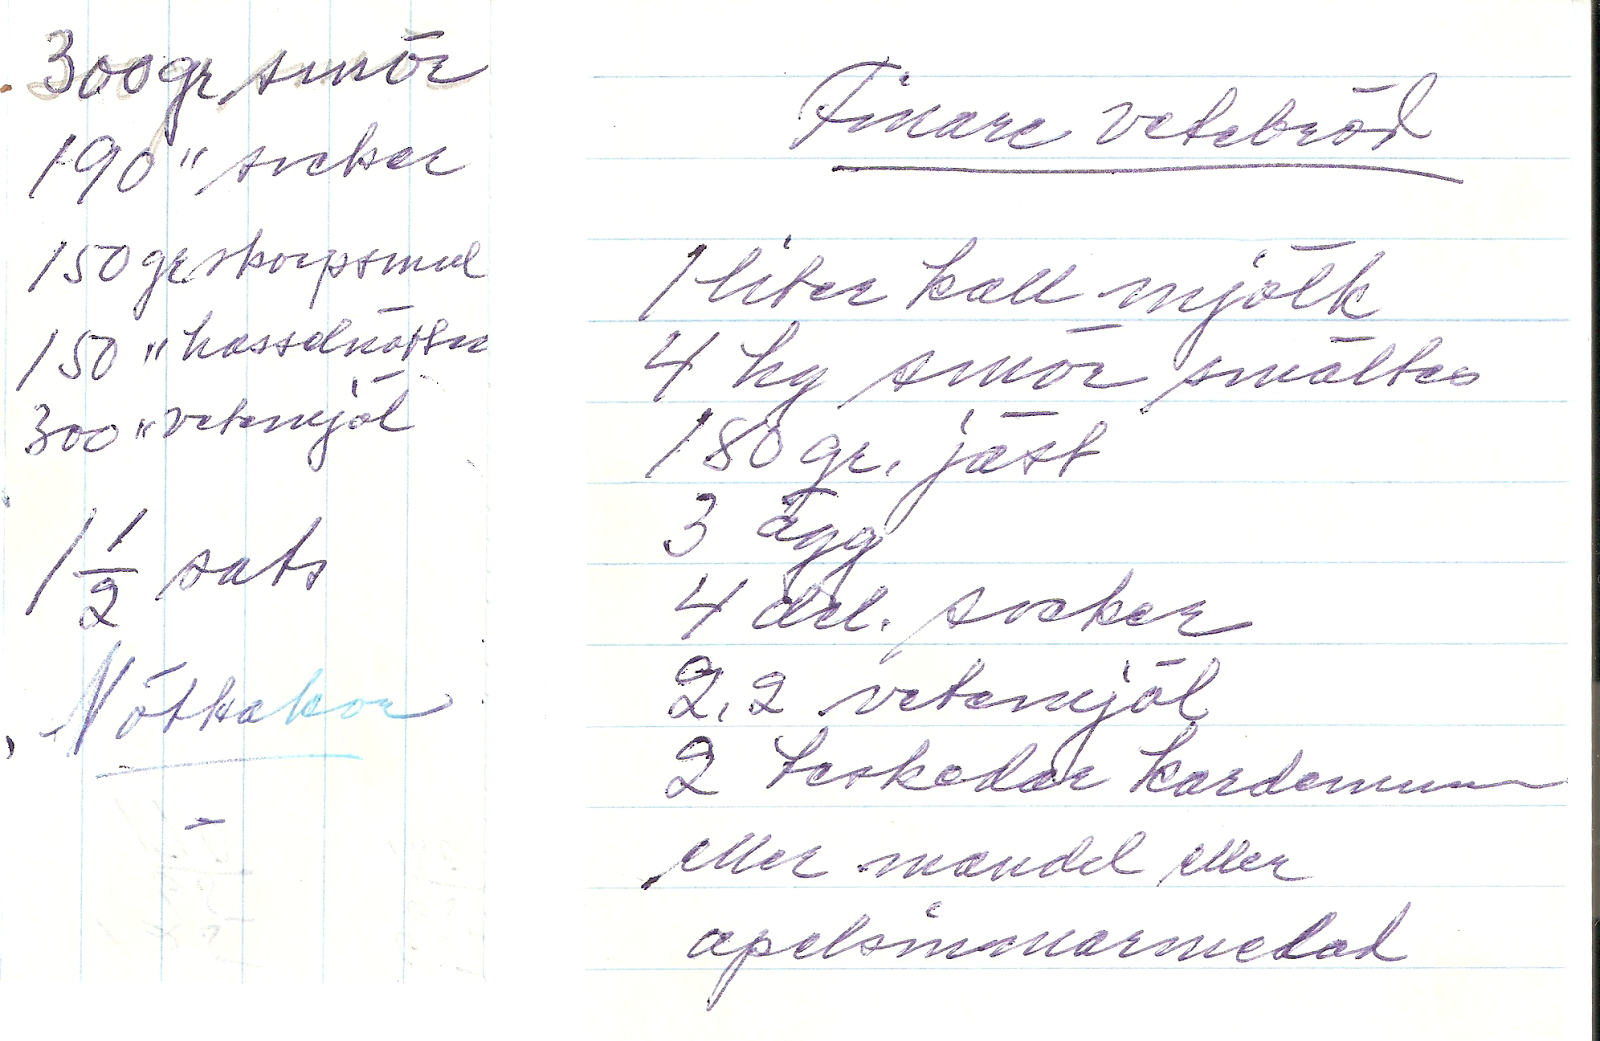 300 gr smör
190 " socker
150 gr skorpsmul
150 " hasselnötter
300 " vetemjöl
1 1/2 sats
Nötkakor
Finare vetebröd
1 liter kall mjölk
4 hg smör smältes
180 gr. jäst
3 ägg
4 del. socker
2,2 vetemjöl
2 teskedar kardemum
eller mandel eller
apelsinmarmelad